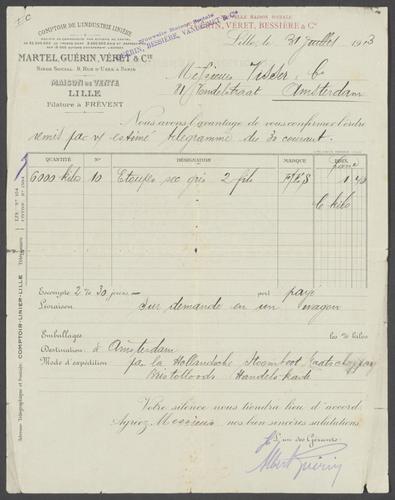 COMPTOIR DE L'INDUSTRIE LINIÈRE
MARTEL, GUÉRIN, VÉRET & Cie
SIÈGE SOCIAL: 9, RUE D'UZÈS À PARIS
MAISON DE VENTE
LILLE
Filature à FRÉVENT
NOUVELLE RAISON SOCIALE
GUÉRIN, BESSIÈRE, VÉRET, BESSIÈRE & Cie
Nouvelle Raison Sociale
Lille, le 31 juillet 1903
Messieurs Visser & Co
Vondelstraat Amsterdam
Nous avons l'avantage de vous confirmer l'ordre
remis par v/ estimé télégramme du 30 courant.
QUANTITÉ No DÉSIGNATION MARQUE PRIX
6000 kilos 10 Etoupes sec gris 2 fils
le kilo
Escompte 2 % 30 jours port payé
Livraison sur demande en un wagon
Emballages les % kilos
Destination: à Amsterdam
Mode d'expédition par la Hollandsche Stoomboot Maatschappij
Handelskade
Votre silence nous tiendra lieu d'accord.
Agréez Messieurs nos bien sincères salutations
L'un des Gérants
Albert Guérin
Adresse Télégraphique et Postale: COMPTOIR-LINIER-LILLE